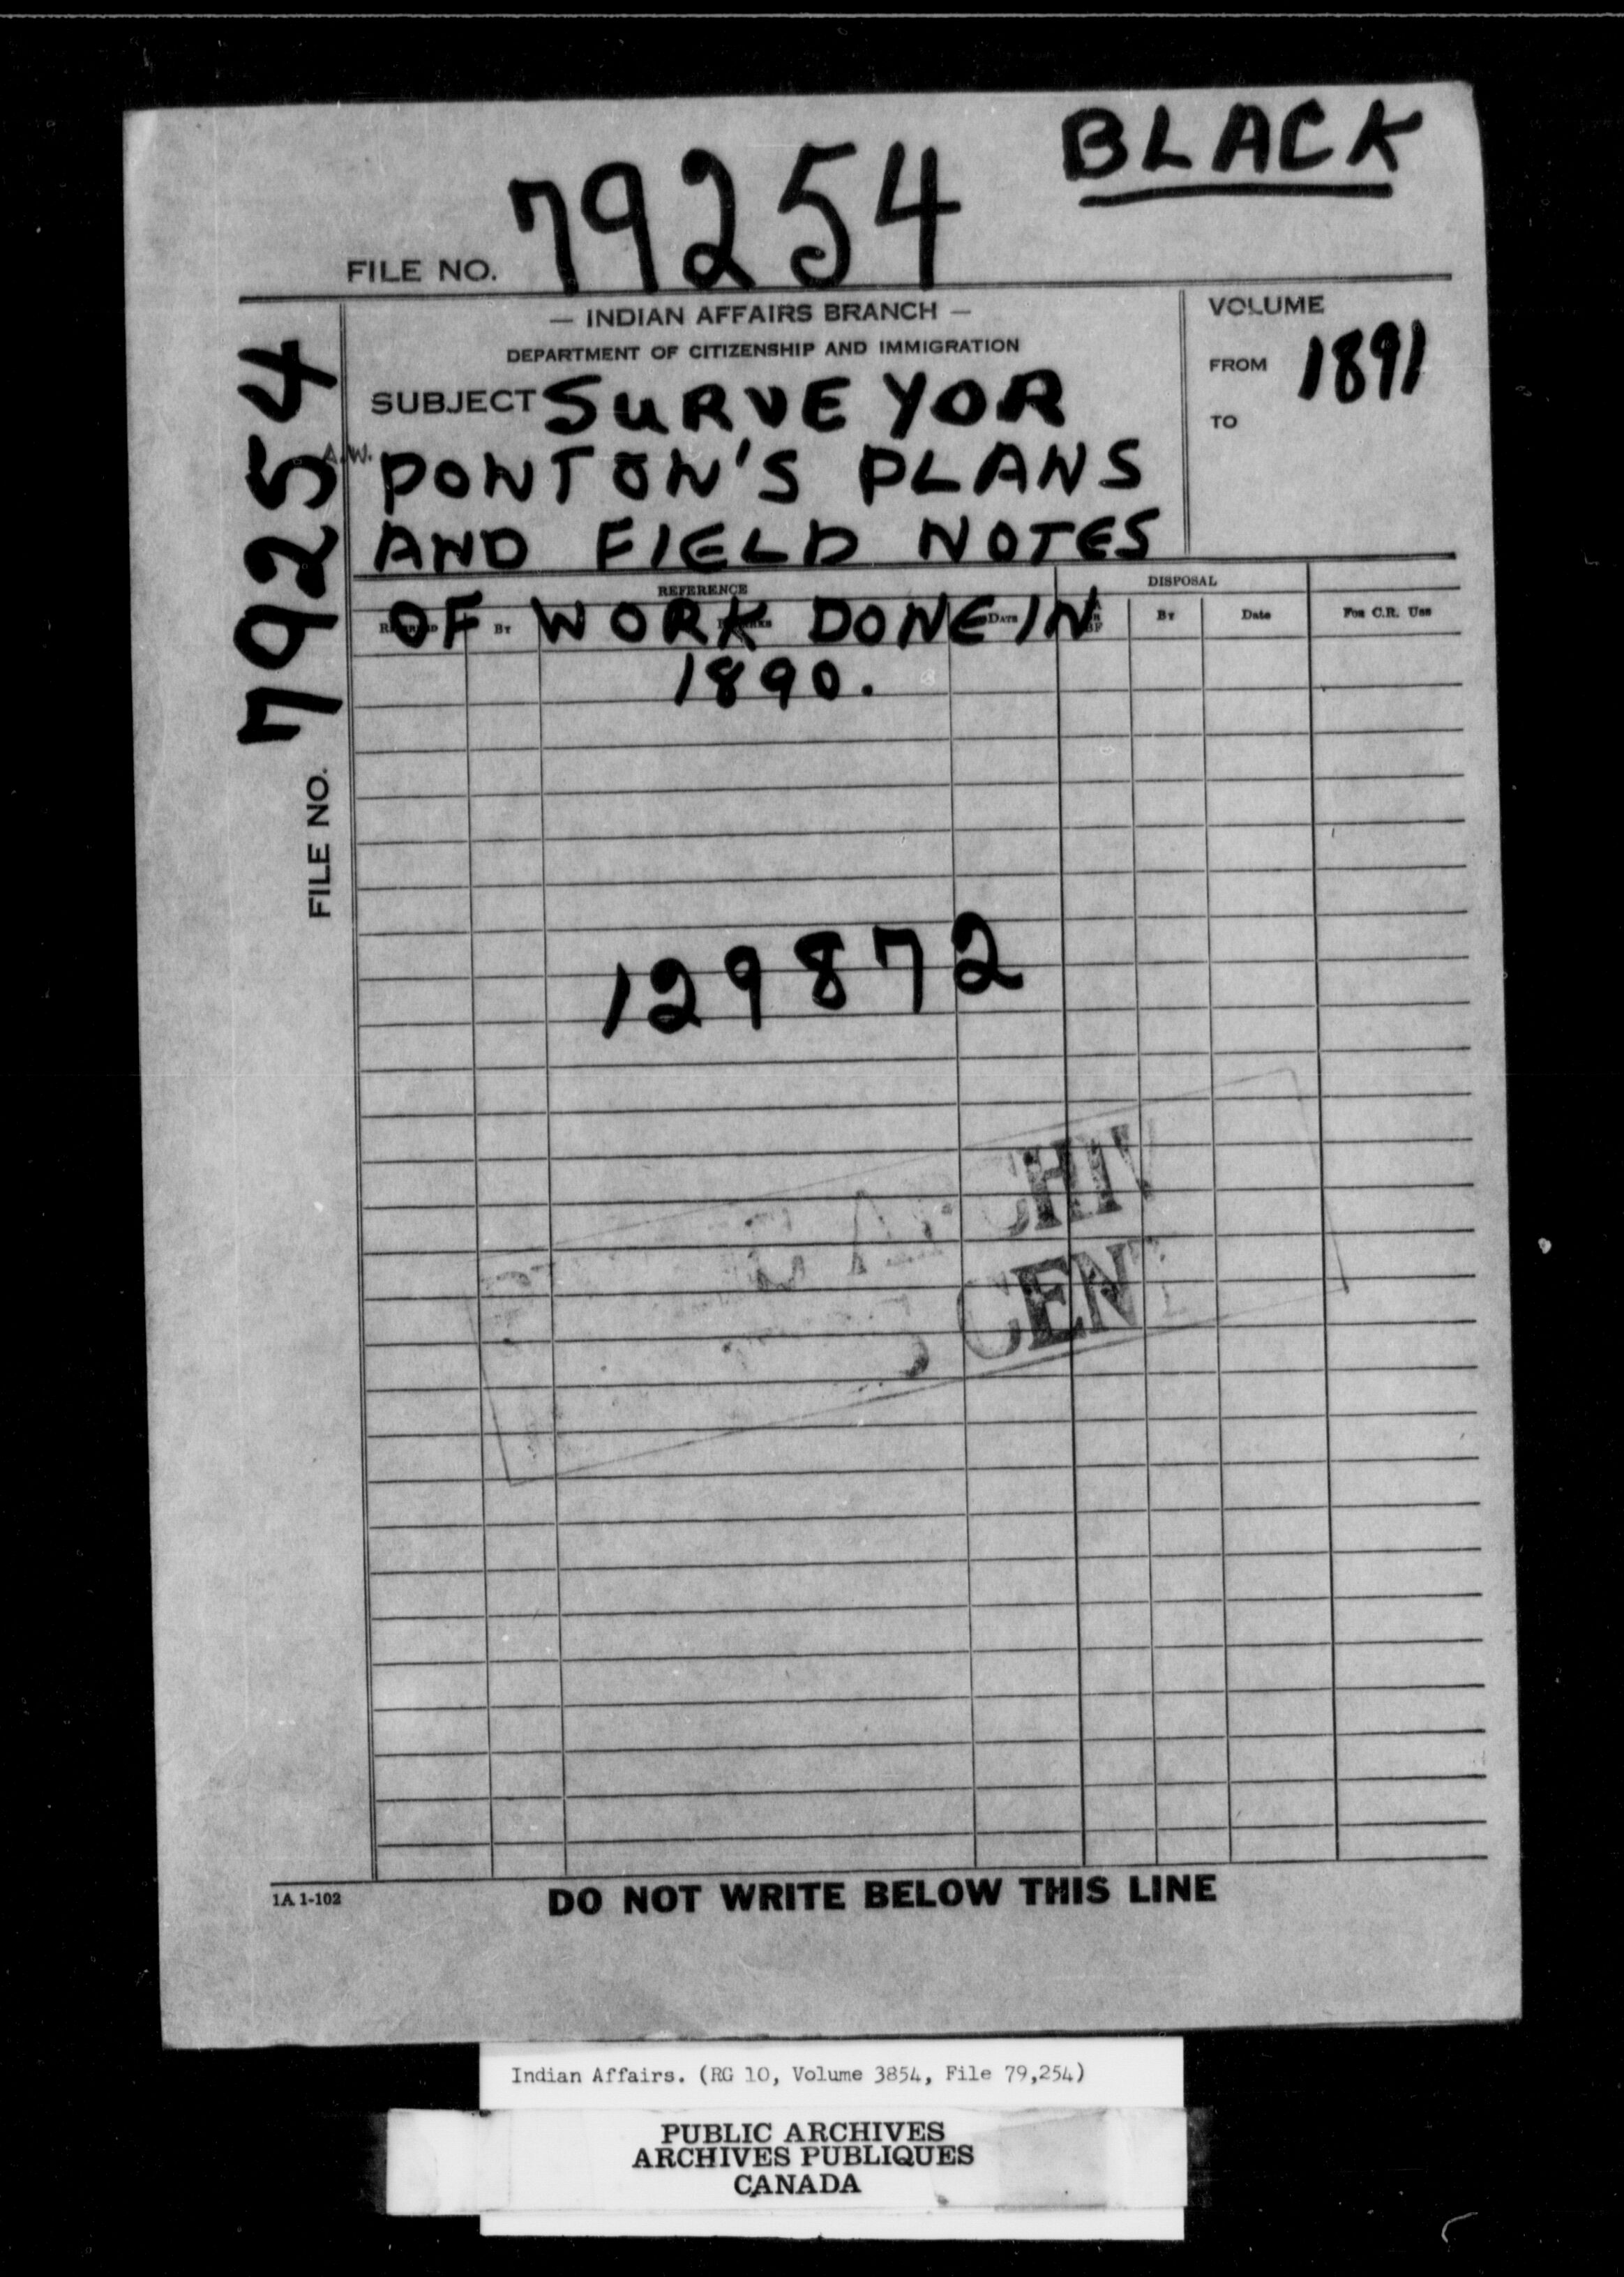 BLACK
FILE NO. 79254
— INDIAN AFFAIRS BRANCH —
DEPARTMENT OF CITIZENSHIP AND IMMIGRATION
VOLUME
FROM 1891
TO
SUBJECT SURVEYOR
A.W. PONTON'S PLANS
AND FIELD NOTES
FILE NO. 79254
REFERENCE
DISPOSAL
OF WORK DONE IN
By
Date
By
Date
For C.R. Use
1890.
129872
CHIV
CENT
1A 1-102
DO NOT WRITE BELOW THIS LINE
Indian Affairs. (RG 10, Volume 3854, File 79,254)
PUBLIC ARCHIVES
ARCHIVES PUBLIQUES
CANADA